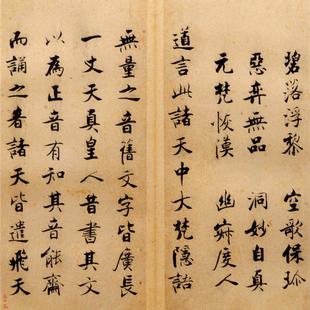 碧落浮黎 空歌保珎
惡弈無品 洞妙自真
元梵恢漠 幽寂度人
道言此諸天中大梵隱語
無量之音舊文字皆廣長
一丈天真皇人昔書其文
以為正音有知其音能齋
而誦之者諸天皆遣飛天